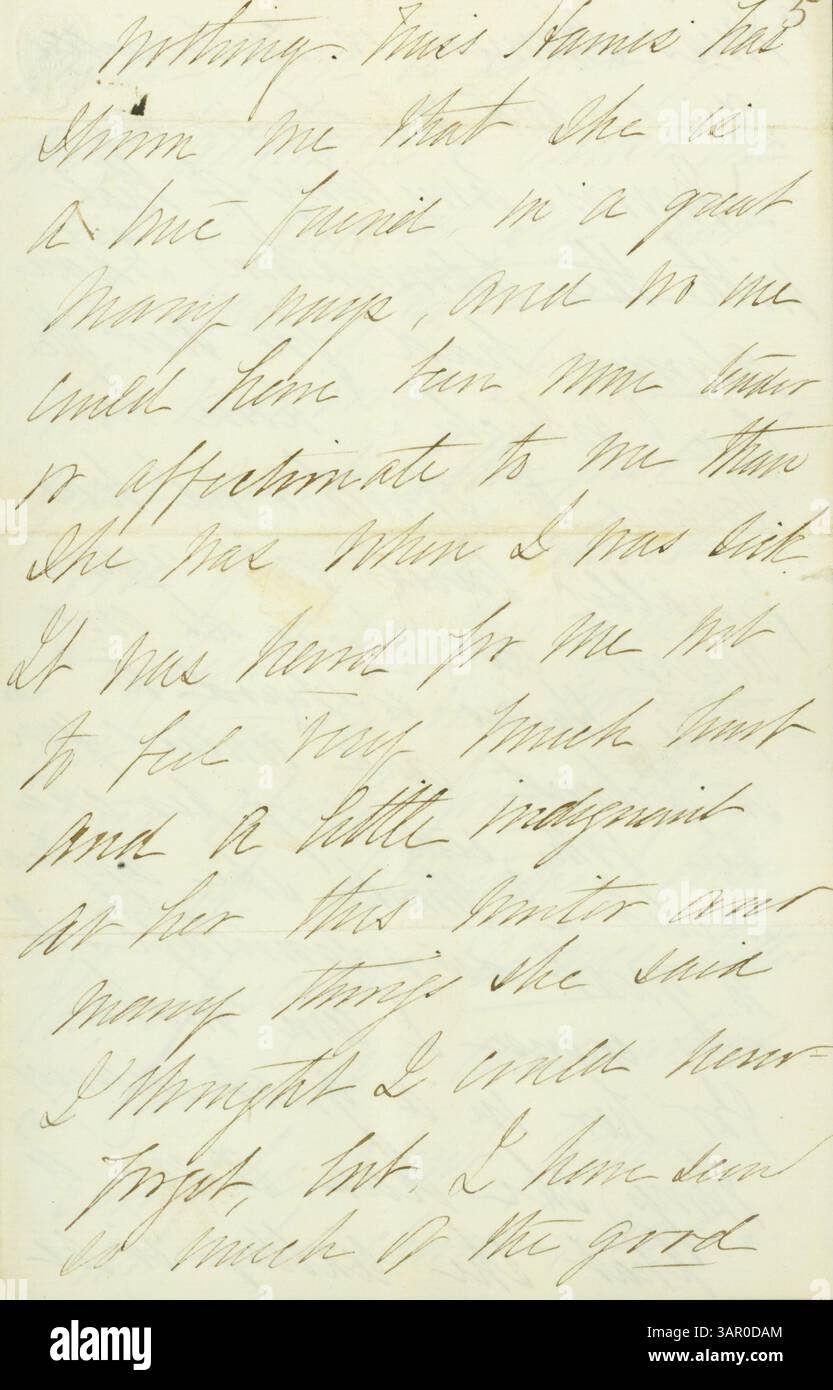 5
nothing. Miss Harris has
shown me that she is
a true friend in a great
many ways, and no one
could have been more tender
or affectionate to me than
she was when I was sick.
It was hard for me not
to feel very much hurt
and a little indignant
at her this winter and
many things she said
I thought I could never
forget, but, I have seen
so much of the good
alamy
Image ID: 3AR0DAM
www.alamy.com